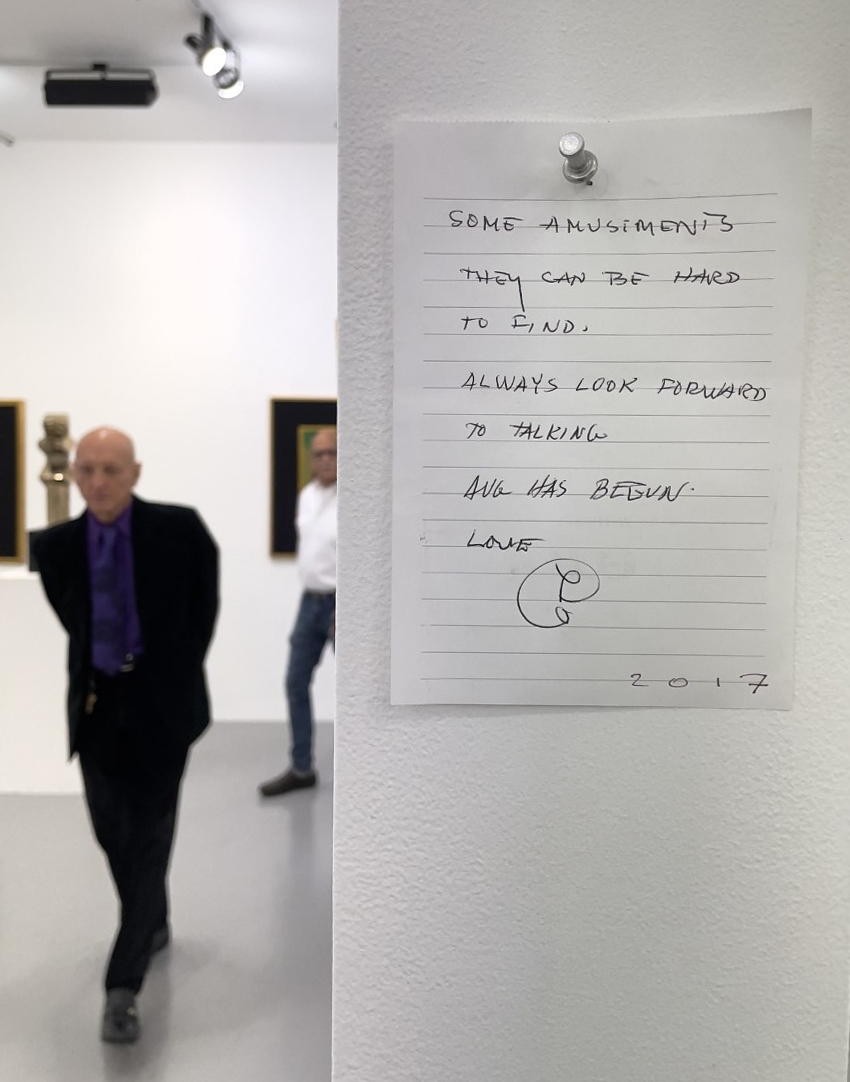 SOME AMUSIMENTS
THEY CAN BE HARD
TO FIND.
ALWAYS LOOK FORWARD
TO TALKING
AUG HAS BEGUN.
LOVE
2017